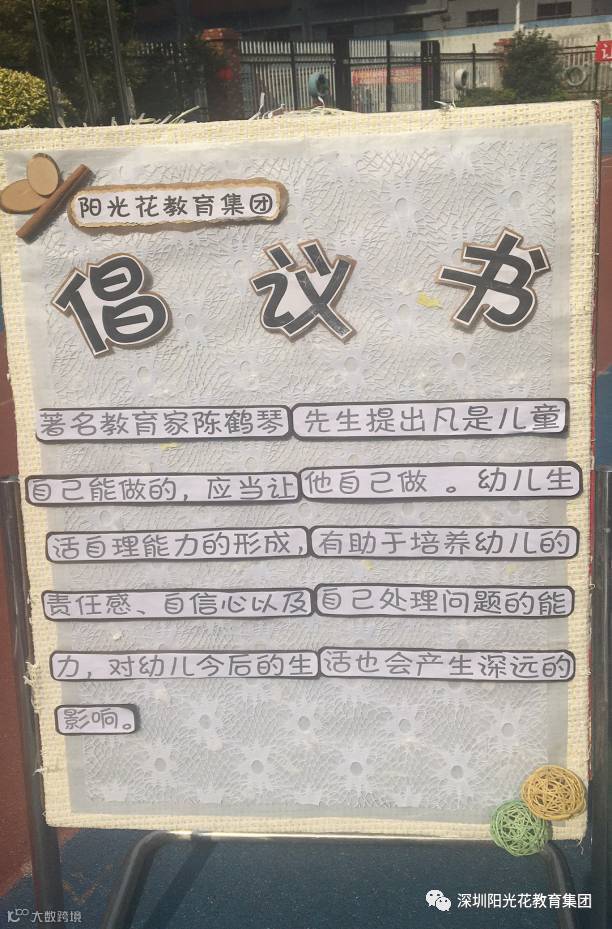 阳光花教育集团
倡议书
著名教育家陈鹤琴先生提出凡是儿童
自己能做的，应当让他自己做。幼儿生
活自理能力的形成，有助于培养幼儿的
责任感、自信心以及自己处理问题的能
力，对幼儿今后的生活也会产生深远的
影响。
深圳阳光花教育集团
大数跨境